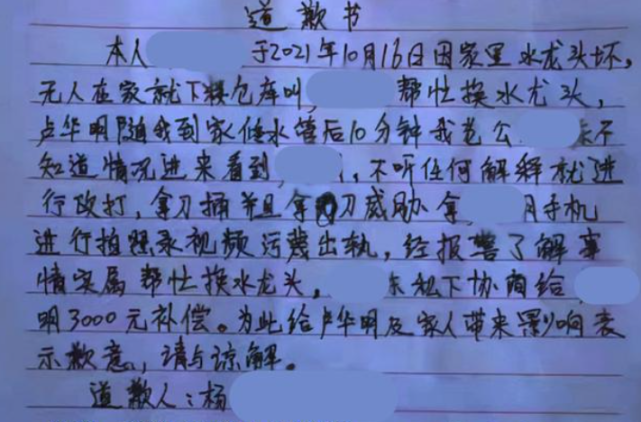 道歉书
本人 于2021年10月16日因家里水龙头坏,
无人在家就下楼仓库叫, 帮忙换水龙头,
卢华明随我到家修水管后10分钟我老公 东不
知道情况进来看到 ,不听任何解释就进
行攻打,拿刀捅并且拿刀威胁拿 手机
进行拍照录视频污蔑出轨,经报警了解事
情实属帮忙换水龙头, 东私下协商给
明3000元补偿。为此给卢华明及家人带来影响表
示歉意,请与谅解。
道歉人:杨